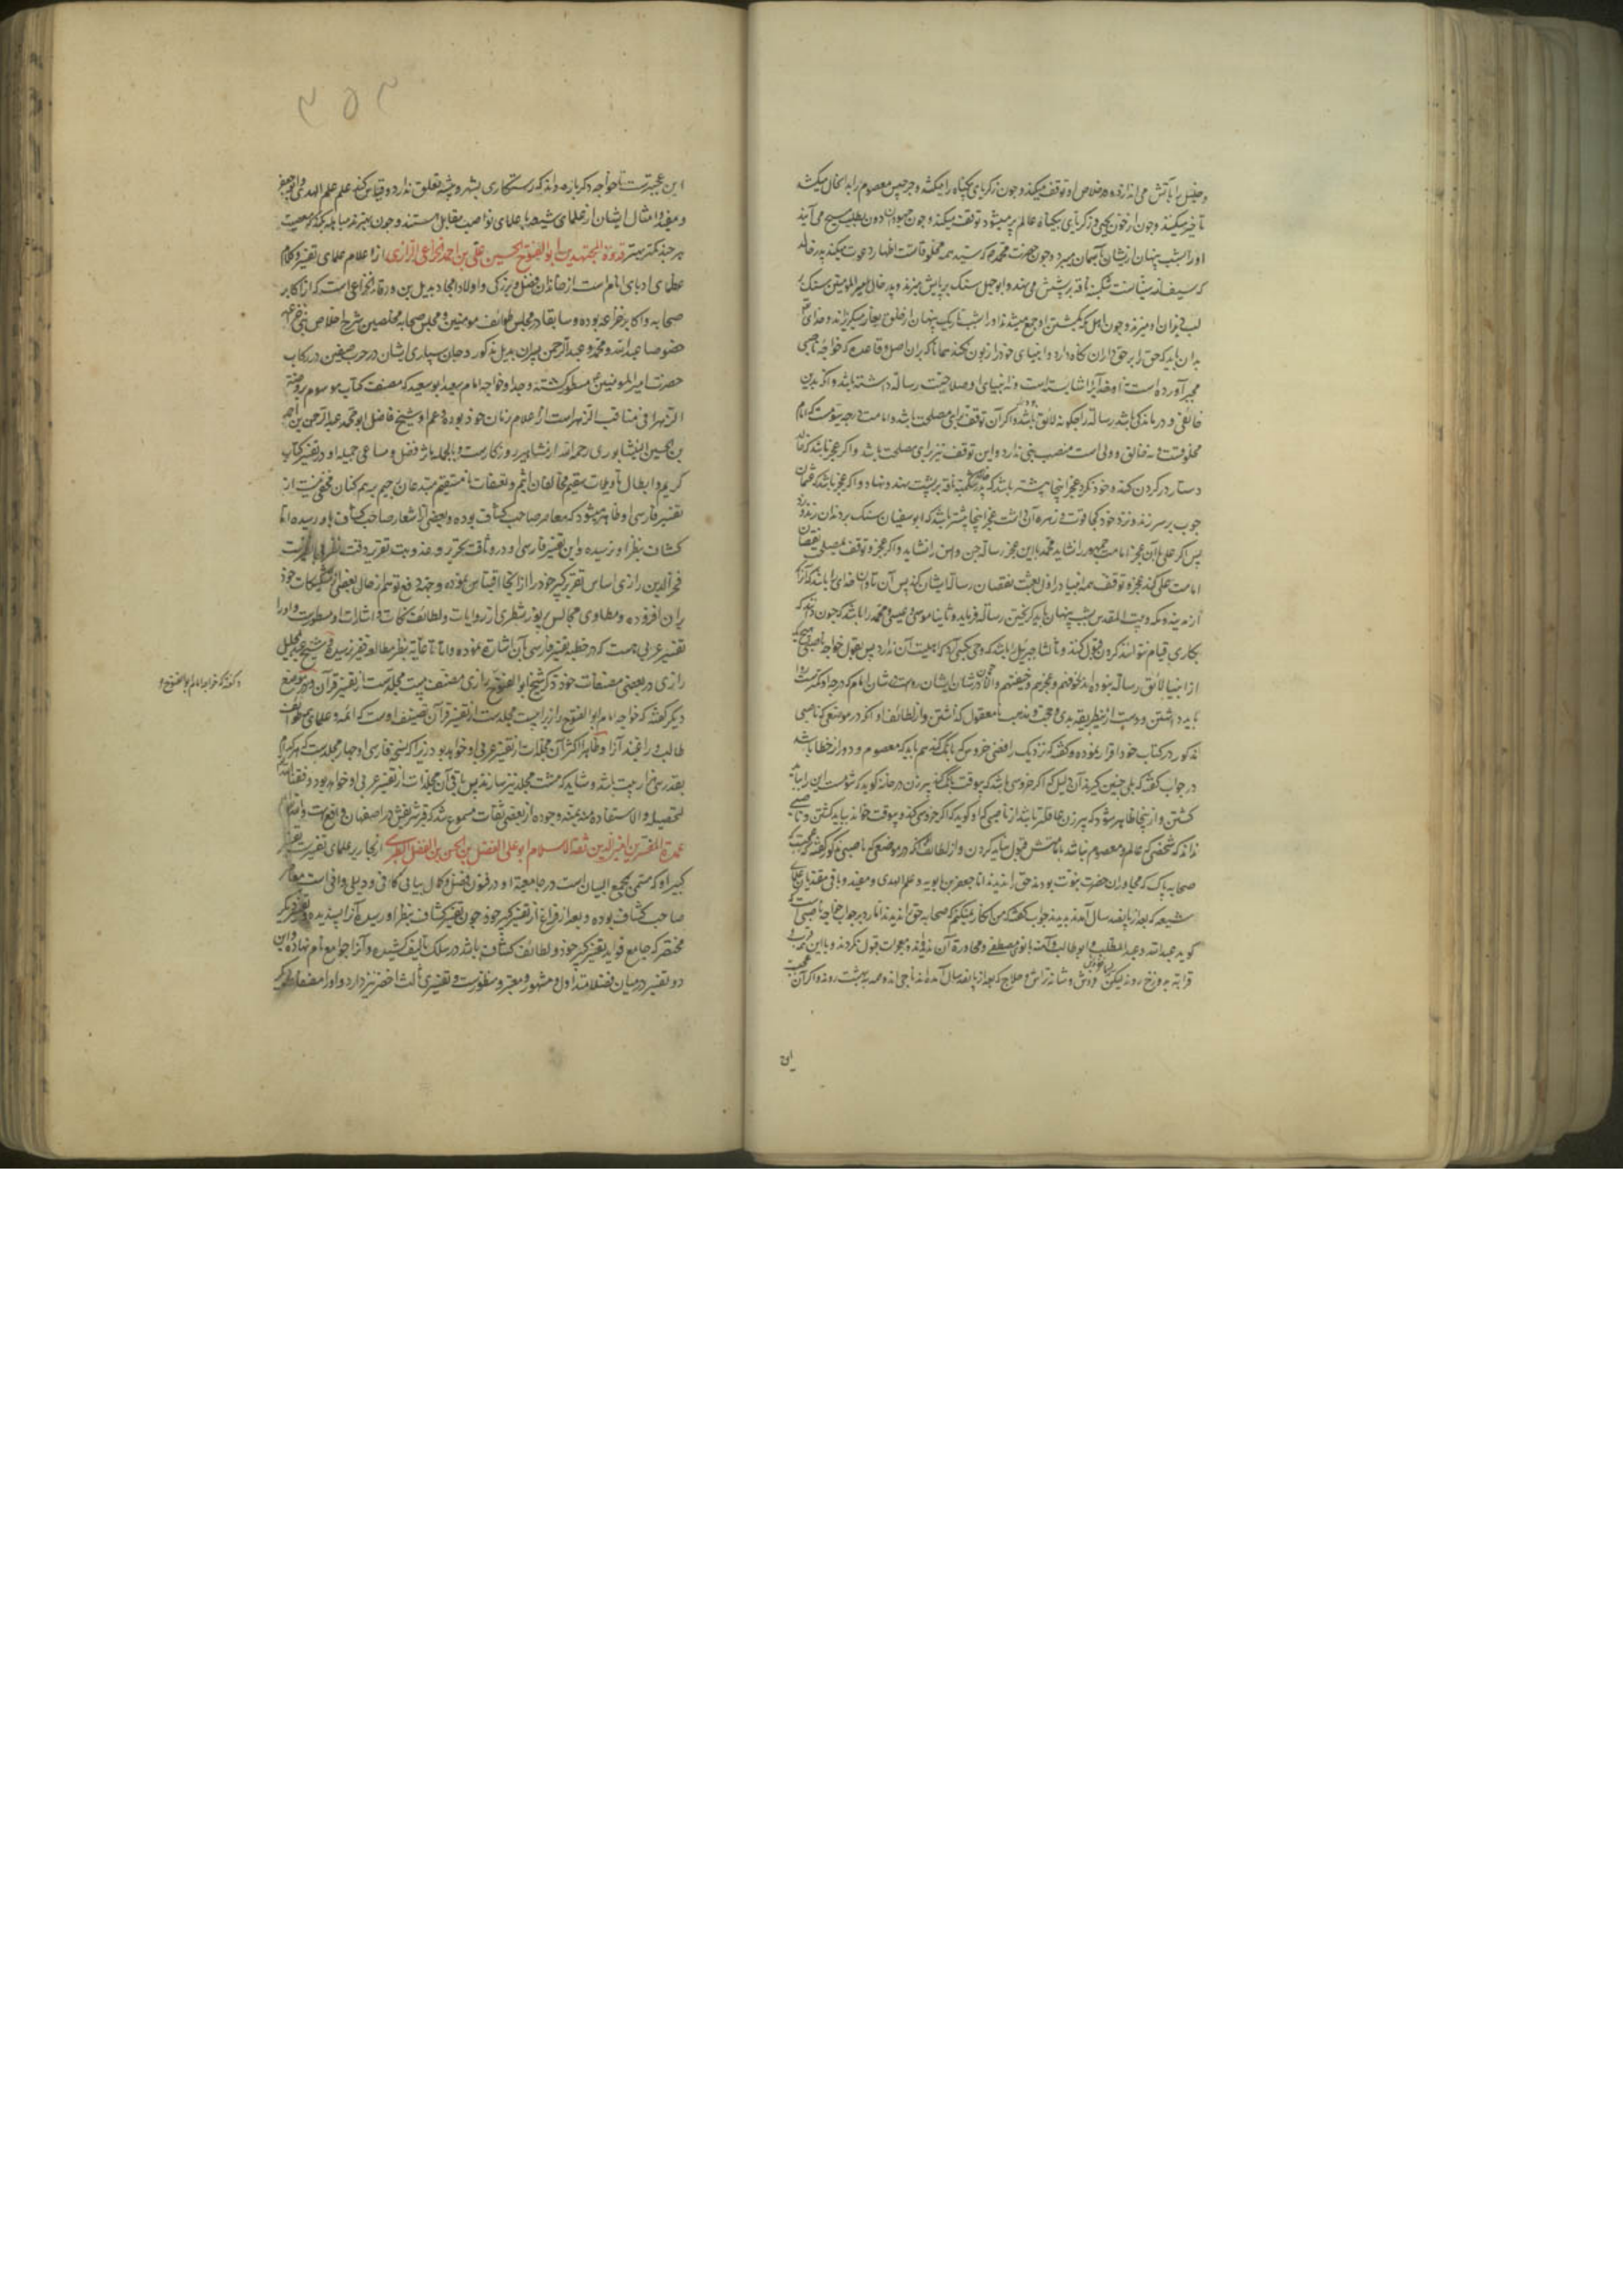 و خلیل را بآتش می اندازد و در خلاص او توقف میکند و چون زکریای بیگناه را میکشند و جرجیس معصوم را بد انحال میکشند
تأخیر میکند و چون از خون یحیی و زکریای بیگناه عالم پر میشود توقف میکند و چون جهودان دون بطلب مسیح می آیند
او را بشب پنهان از یشان بآسمان میبرد و چون حضرت محمد که سید همه مخلوقاتست اظهار دعوت میکند
شکنبه ناقه بر پشتش می نهند و ابوجهل سنگ بر پایش میزند
لب و دندان او میزند و چون اهل مکه بکشتن او جمع میشوند او را بشب تاریک پنهان از خلق بغار میگریزاند و خدای
بدان باید که حق را بر حق داران نگاه دارد و انبیای خود را زبون نکند همانا که بر ان اصل و قاعده که خواجه ناصبی
مجبر آورده است نه خدا خدائی را شایسته است و نه انبیای او صلاحیت رسالت داشته باشند و آنکه بدین
خائفی و درماندگی باشد رسالت را چگونه لائق باشد و اگر آن توقف برای مصلحت باشد و امامت درجه سیومست که امام
مخلوقست نه خالق و ولی است منصب نبی ندارد و این توقف نیز برای مصلحت باشد و اگر عجز باشد که
دستار در گردن کنند و خود نکرد عجز اینجا بیشتر باشد که شکنبه ناقه بر پشت نهند و نهاد و اگر عجز باشد که عثمان
چوب بر سر زند و نزد خود کجا قوت و زهره آن داشت عجز اینجا بیشتر باشد که ابوسفیان سنگ بر دندان زند و زد
پس اگر علی با آن عجز امامت جمهور را نشاید محمد با این عجز رسالت جن و انس را نشاید و اگر عجز و توقف بمصلحت نقصان
امامت علی کند عجز و توقف همه انبیا در اول بعثت نقصان رسالت ایشان کند پس آن تاوان خدای را باشد که آنرا
از مدینه و مکه و بیت المقدس بشب پنهان باید گریختن رسالت فرماید و ثانیا موسی و عیسی و محمد را باشد که چون دانند که
بکاری قیام نتوانند کردن قبول کنند و ثالثا جبرئیل را باشد که وحی بکسی آرد که اهلیت آن ندارد پس بقول خواجه ناصبی
از انبیا لائق رسالت نبوده اند لخوفهم و عجزهم و ضعفهم و الا در شان ایشان رواست در شان امام که درجه او کمترست روا
باید داشتن و دست از طریقه بدی و حجت و مذهب نامعقول گذاشتن و از لطائف او آنکه در موضعی که ناصبی
مذکور در کتاب خود اقرار نموده و گفته که نزدیک رافضی خروس که بانگ کند هم باید که معصوم و دور از خطا باشد
در جواب گفته که بلی چنین گیرند آن دلیل که اگر خروسی باشد که بیوقت بانگ کند پیرزن در خانه گوید که شومست این را باید
کشتن و ازینجا ظاهر شود که پیرزن عاقلتر باشد از ناصبی که او گوید که اگر خروسی که نه بوقت خواند بباید کشتن و ناصبی
نداند که شخصی که عالم و معصوم نباشد بامامتش قبول نباید کردن و از لطائف آنکه در موضعی که ناصبی مذکور گفته که عجبست که
صحابه پاک که مجاوران حضرت نبوت بودند حق را ندیدند اما جعفر بن بابویه و علم الهدی و مفید و باقی مقتدیان علمای
شیعه که بعد از پانصد سال آمدند بدیدند جواب گفته که من انکار نمیکنم که صحابه حق را ندیدند اما در جواب خواجه ناصبی است که
گوید عبدالله و عبدالمطلب و ابوطالب و آمنه با نور مصطفی و مجاورت آن ندیده معجزات قبول نکردند و با این قرب
قرابت بدوزخ روند لیکن و شانه تراش و حلاج که بعد از پانصد سال آمده اند ناجی اند و همه ببهشت روند و اگر آن عجبست
این
این عجبترست تا خواجه دگرباره داند که رستگاری بشهر و پیشه تعلق ندارد و قیاس نکند علم علم الهدی و ابو جعفر
و مفید و امثال ایشان از علمای شیعه با علمای نواصب مقابل هستند و چون
هر چند کمتر بهتر قدوة المجتهدین ابوالفتوح الحسین بن علی بن احمد الخزاعی الرازی از اعلام علمای تفسیر و کلام
عظمای ادبای انام است از خاندان فضل و بزرگی و اولاد امجاد بدیل بن ورقاء الخزاعی است که از اکابر
صحابه و اکابر خزاعه بوده و سابقا در مجلس طوائف مومنین و مجلس صحابه مخلصین شرح اخلاص
خصوصا عبدالله و محمد و عبدالرحمن پسران بدیل مذکور و جان سپاری ایشان در حرب صفین در رکاب
حضرت امیرالمومنین مسطور گشته و جد او خواجه امام سعید ابو سعید که مصنف کتاب موسوم بروضة
الزهرا فی مناقب الزهراست از اعلام زمان خود بوده و عم او شیخ فاضل ابو محمد عبدالرحمن بن احمد
بن الحسین النیشابوری رحمه الله از مشاهیر روزگارست و بالجمله مآثر فضل و مساعی جمیله او در تفسیر کتاب
کریم و ابطال تأویلات سقیم مخالفان اثیم و تعسفات نامستقیم مبتدعان رجیم بر همکنان مخفی نیست از
تفسیر فارسی او ظاهر میشود که معاصر صاحب کشاف بوده و بعضی از اشعار صاحب کشاف باو رسیده اما
کشاف بنظر او نرسیده و این تفسیر فارسی او در وثاقت تحریر و عذوبت تقریر و دقت نظر بی نظیرست
فخر الدین رازی اساس تفسیر کبیر خود را از انجا اقتباس نموده و جهة دفع توهم انتحال بعضی از تشکیکات خود
بر ان افزوده و مطاوی مجالس پر نور شطری از روایات و لطائف نکات و اشارات او مسطورست و او را
تفسیر عربی هست که در خطبه تفسیر فارسی بآن اشارت نموده و اما تا غایه بنظر مطالعه فقیر نرسیده و شیخ عبدالجلیل
رازی در بعضی مصنفات خود ذکر شیخ ابوالفتوح رازی مصنف بیست مجلدست از تفسیر قرآن و در موضع
و گفته که خواجه امام ابوالفتوح
دیگر گفته که خواجه امام ابوالفتوح رازی را بیست مجلدست از تفسیر قرآن تصنیف اوست که ائمه و علمای همه طوائف
طالب و راغبند آنرا و ظاهرا اکثر آن مجلدات از تفسیر عربی او خواهد بود زیرا که نسخه فارسی او چهار مجلدست که هر کدام
بقدر سی هزار بیت باشد و شاید که هشت مجلد نیز سازند پس باقی آن مجلدات از تفسیر عربی او خواهد بود وفقنا الله
لتحصیله و الاستفاده منه بمنه و جوده از بعضی ثقات مسموع شد که قبر شریفش در اصفهان واقع است والله اعلم
عمدة المفسرین امین الدین ثقة الاسلام ابو علی الفضل بن الحسن بن الفضل الطبرسی از نحاریر علمای تفسیرست تفسیر
کبیر او که مسمی بمجمع البیان است در جامعیت او در فنون فضل و کمال بیانی کافی و دلیلی وافی است معاصر
صاحب کشاف بوده و بعد از فراغ از تفسیر کبیر خود چون تفسیر کشاف بنظر او رسیده آنرا پسندیده و تفسیر دیگر
مختصر که جامع فواید تفسیر کبیر خود و لطائف کشاف باشد در سلک تألیف کشیده و آنرا جوامع نام نهاده و این
دو تفسیر در میان فضلا متداول و مشهور و معتبر و منظورست و تفسیری ثالث اخصر نیز دارد و او را مصنفات دیگر